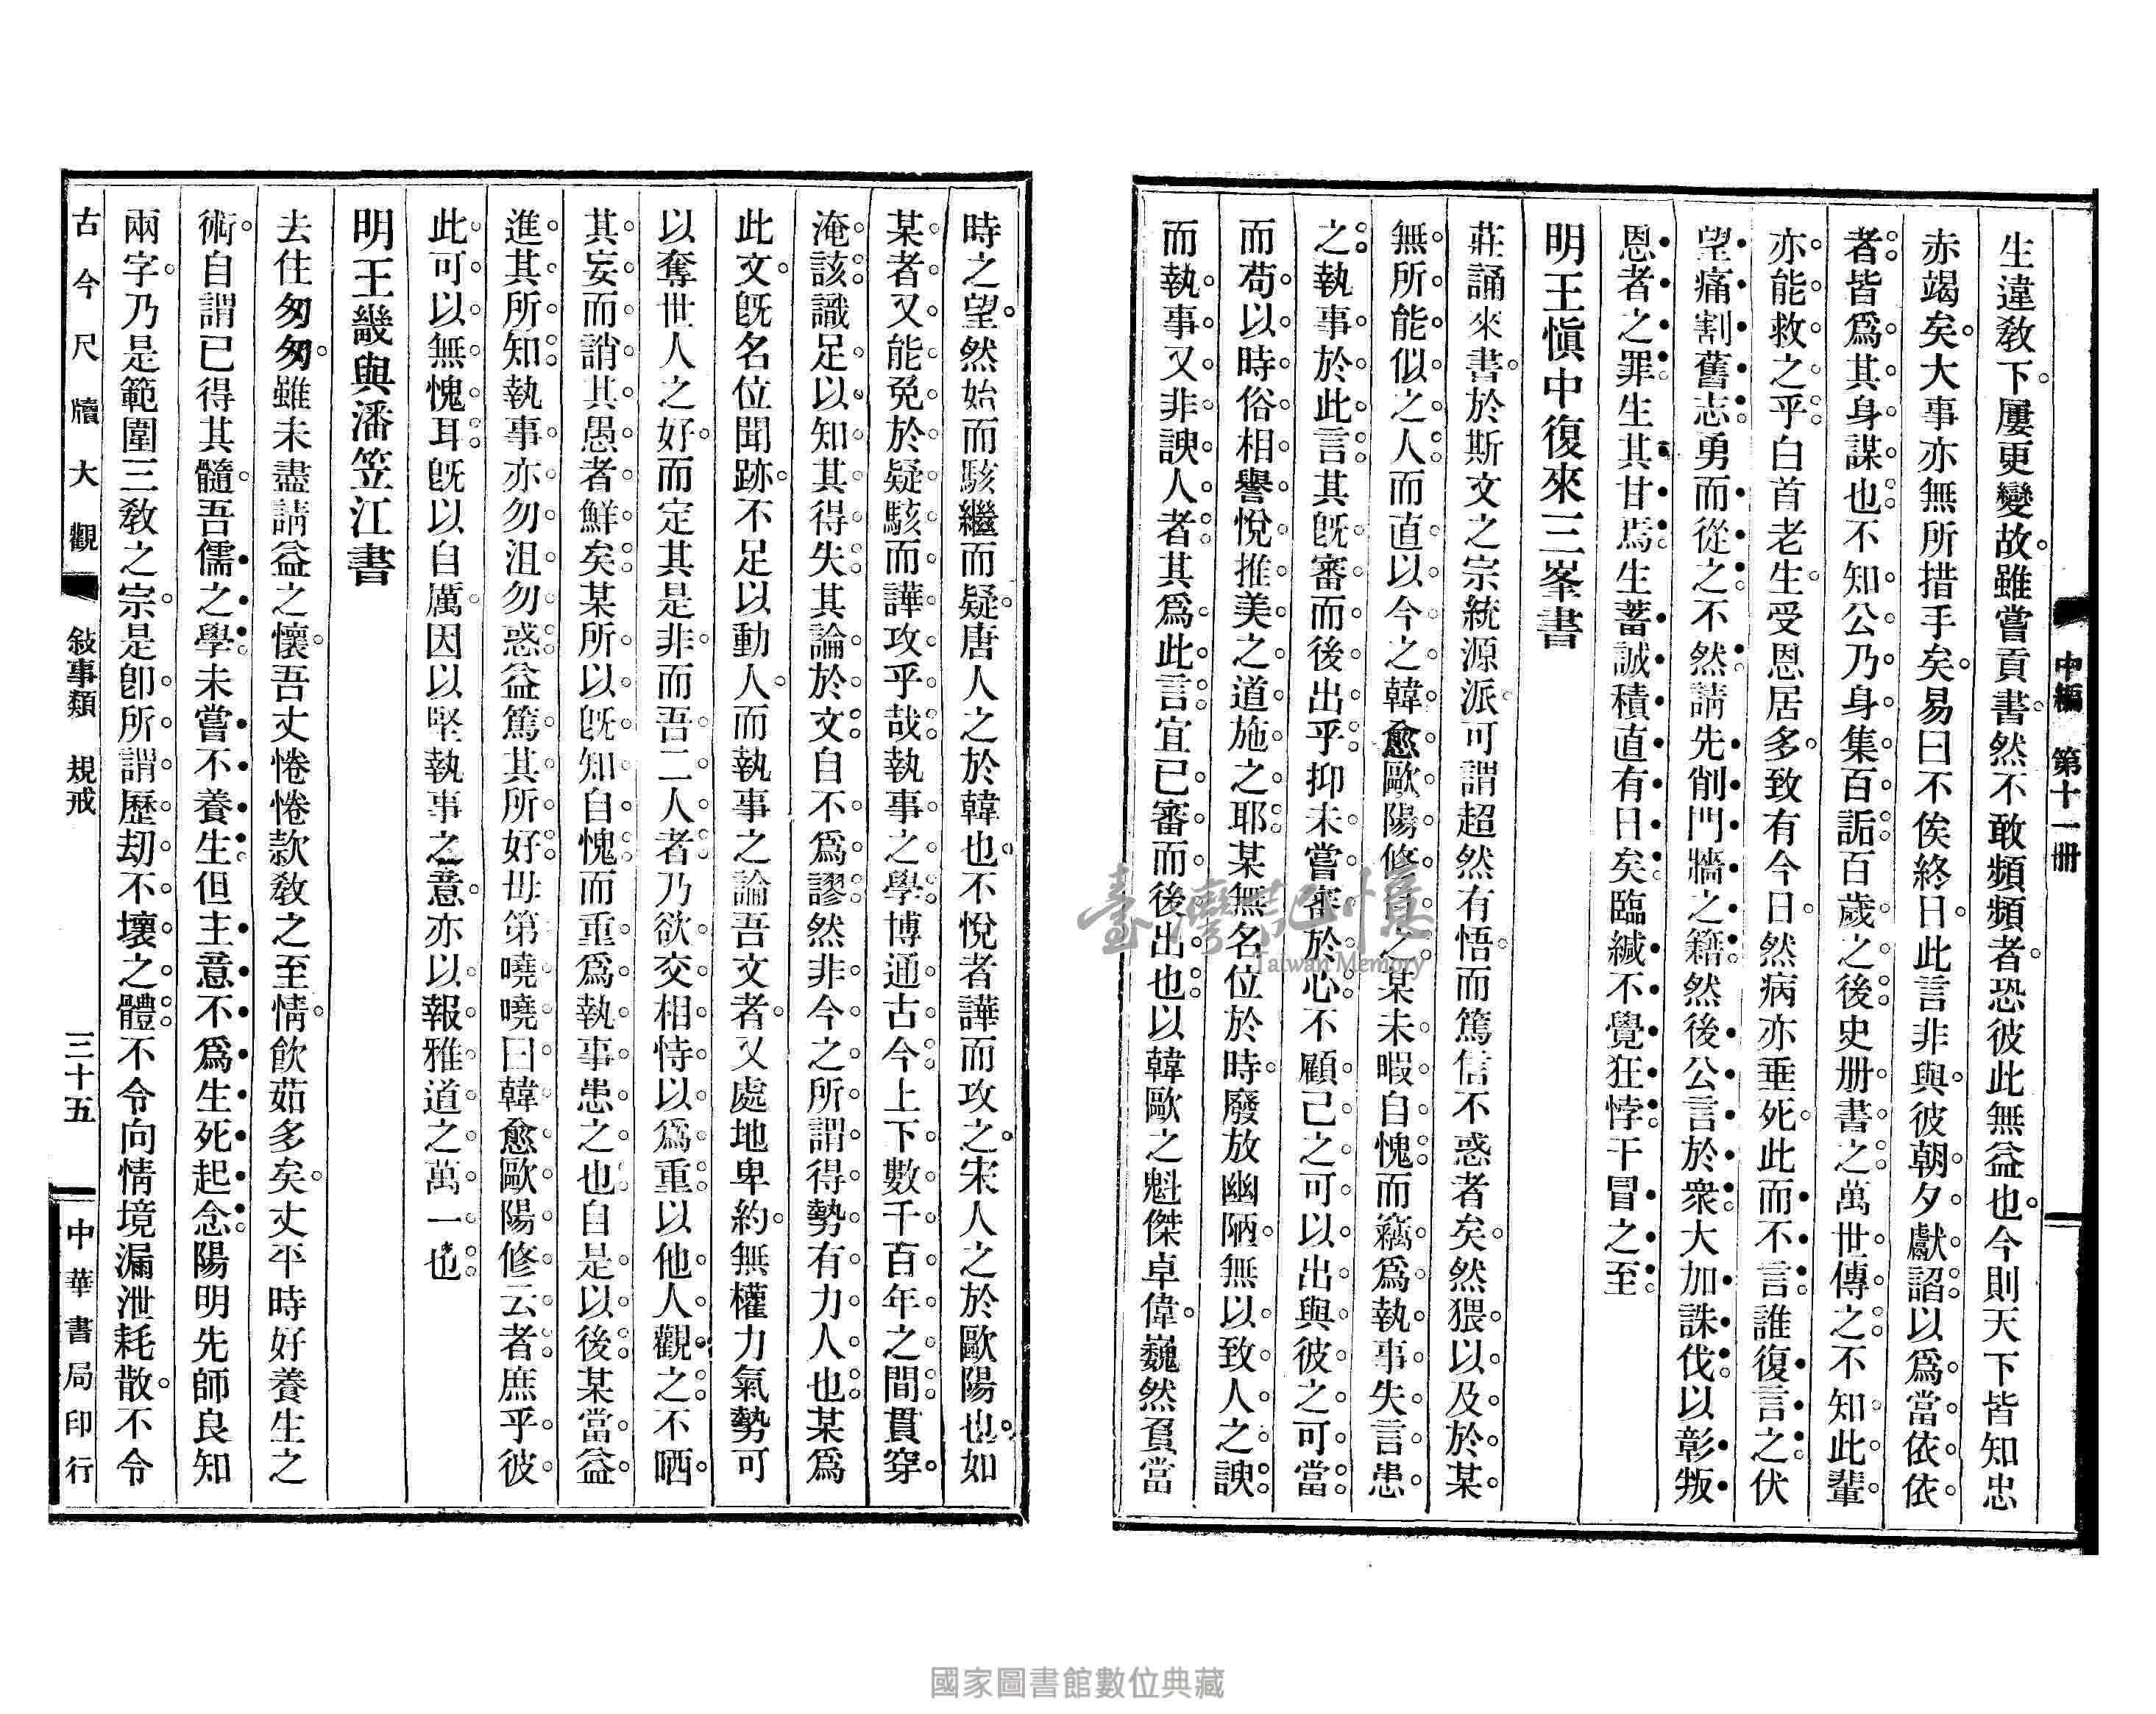 中編　第十一册
生違敎下屢更變故雖嘗貢書然不敢頻頻者恐彼此無益也今則天下皆知忠
赤竭矣大事亦無所措手矣易曰不俟終日此言非與彼朝夕獻諂以爲當依依
者皆爲其身謀也不知公乃身集百詬百歲之後史册書之萬世傳之不知此輩
亦能救之乎白首老生受恩居多致有今日然病亦垂死此而不言誰復言之伏
望痛割舊志勇而從之不然請先削門牆之籍然後公言於衆大加誅伐以彰叛
恩者之罪生其甘焉生蓄誠積直有日矣臨緘不覺狂悖干冒之至
明王愼中復來三峯書
莊誦來書於斯文之宗統源派可謂超然有悟而篤信不惑者矣然猥以及於某
無所能似之人而直以今之韓愈歐陽修目之某未暇自愧而竊爲執事失言患
之執事於此言其旣審而後出乎抑未嘗審於心不顧己之可以出與彼之可當
而苟以時俗相譽悅推美之道施之耶某無名位於時廢放幽陋無以致人之諛
而執事又非諛人者其爲此言宜已審而後出也以韓歐之魁傑卓偉巍然負當
時之望然始而駭繼而疑唐人之於韓也不悅者譁而攻之宋人之於歐陽也如
某者又能免於疑駭而譁攻乎哉執事之學博通古今上下數千百年之間貫穿
淹該識足以知其得失其論於文自不爲謬然非今之所謂得勢有力人也某爲
此文旣名位聞跡不足以動人而執事之論吾文者又處地卑約無權力氣勢可
以奪世人之好而定其是非而吾二人者乃欲交相恃以爲重以他人觀之不哂
其妄而誚其愚者鮮矣某所以旣知自愧而重爲執事患之也自是以後某當益
進其所知執事亦勿沮勿惑益篤其所好毋第嘵嘵曰韓愈歐陽修云者庶乎彼
此可以無愧耳旣以自厲因以堅執事之意亦以報雅道之萬一也
明王畿與潘笠江書
去住匆匆雖未盡請益之懷吾丈惓惓款敎之至情飮茹多矣丈平時好養生之
術自謂已得其髓吾儒之學未嘗不養生但主意不爲生死起念陽明先師良知
兩字乃是範圍三敎之宗是卽所謂歷劫不壞之體不令向情境漏泄耗散不令
古今尺牘大觀　敍事類　規戒　三十五　中華書局印行
臺灣記憶
Taiwan Memory
國家圖書館數位典藏